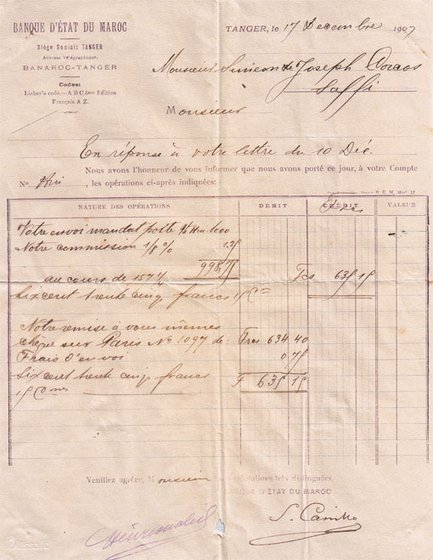 BANQUE D'ÉTAT DU MAROC
Siège Social: TANGER
Adresse Télégraphique:
BANAROC-TANGER
Codes:
Lieber's code. — A B C 5me Edition
Français A. Z.
TANGER, le 17 Décembre 1907
Monsieur Simeon de Joseph
Saffi
Monsieur
En réponse à votre lettre du 10 Déc.
Nous avons l'honneur de vous informer que nous avons porté ce jour, à votre Compte
No , les opérations ci-après indiquées:
NATURE DES OPÉRATIONS DÉBIT CRÉDIT VALEUR
Votre envoi mandat poste 1000
Notre commission 1/8 %
au cours de 157 % Fcs 635 15
Six cent trente cinq francs 15 cmes
Notre remise à vous mêmes
chèque sur Paris No 1097 de: Frcs 634 40
Frais d'envoi 0 75
Six cent trente cinq francs F 635 15
15 cmes
Veuillez agréer, Monsieur salutations très distinguées.
BANQUE D'ÉTAT DU MAROC